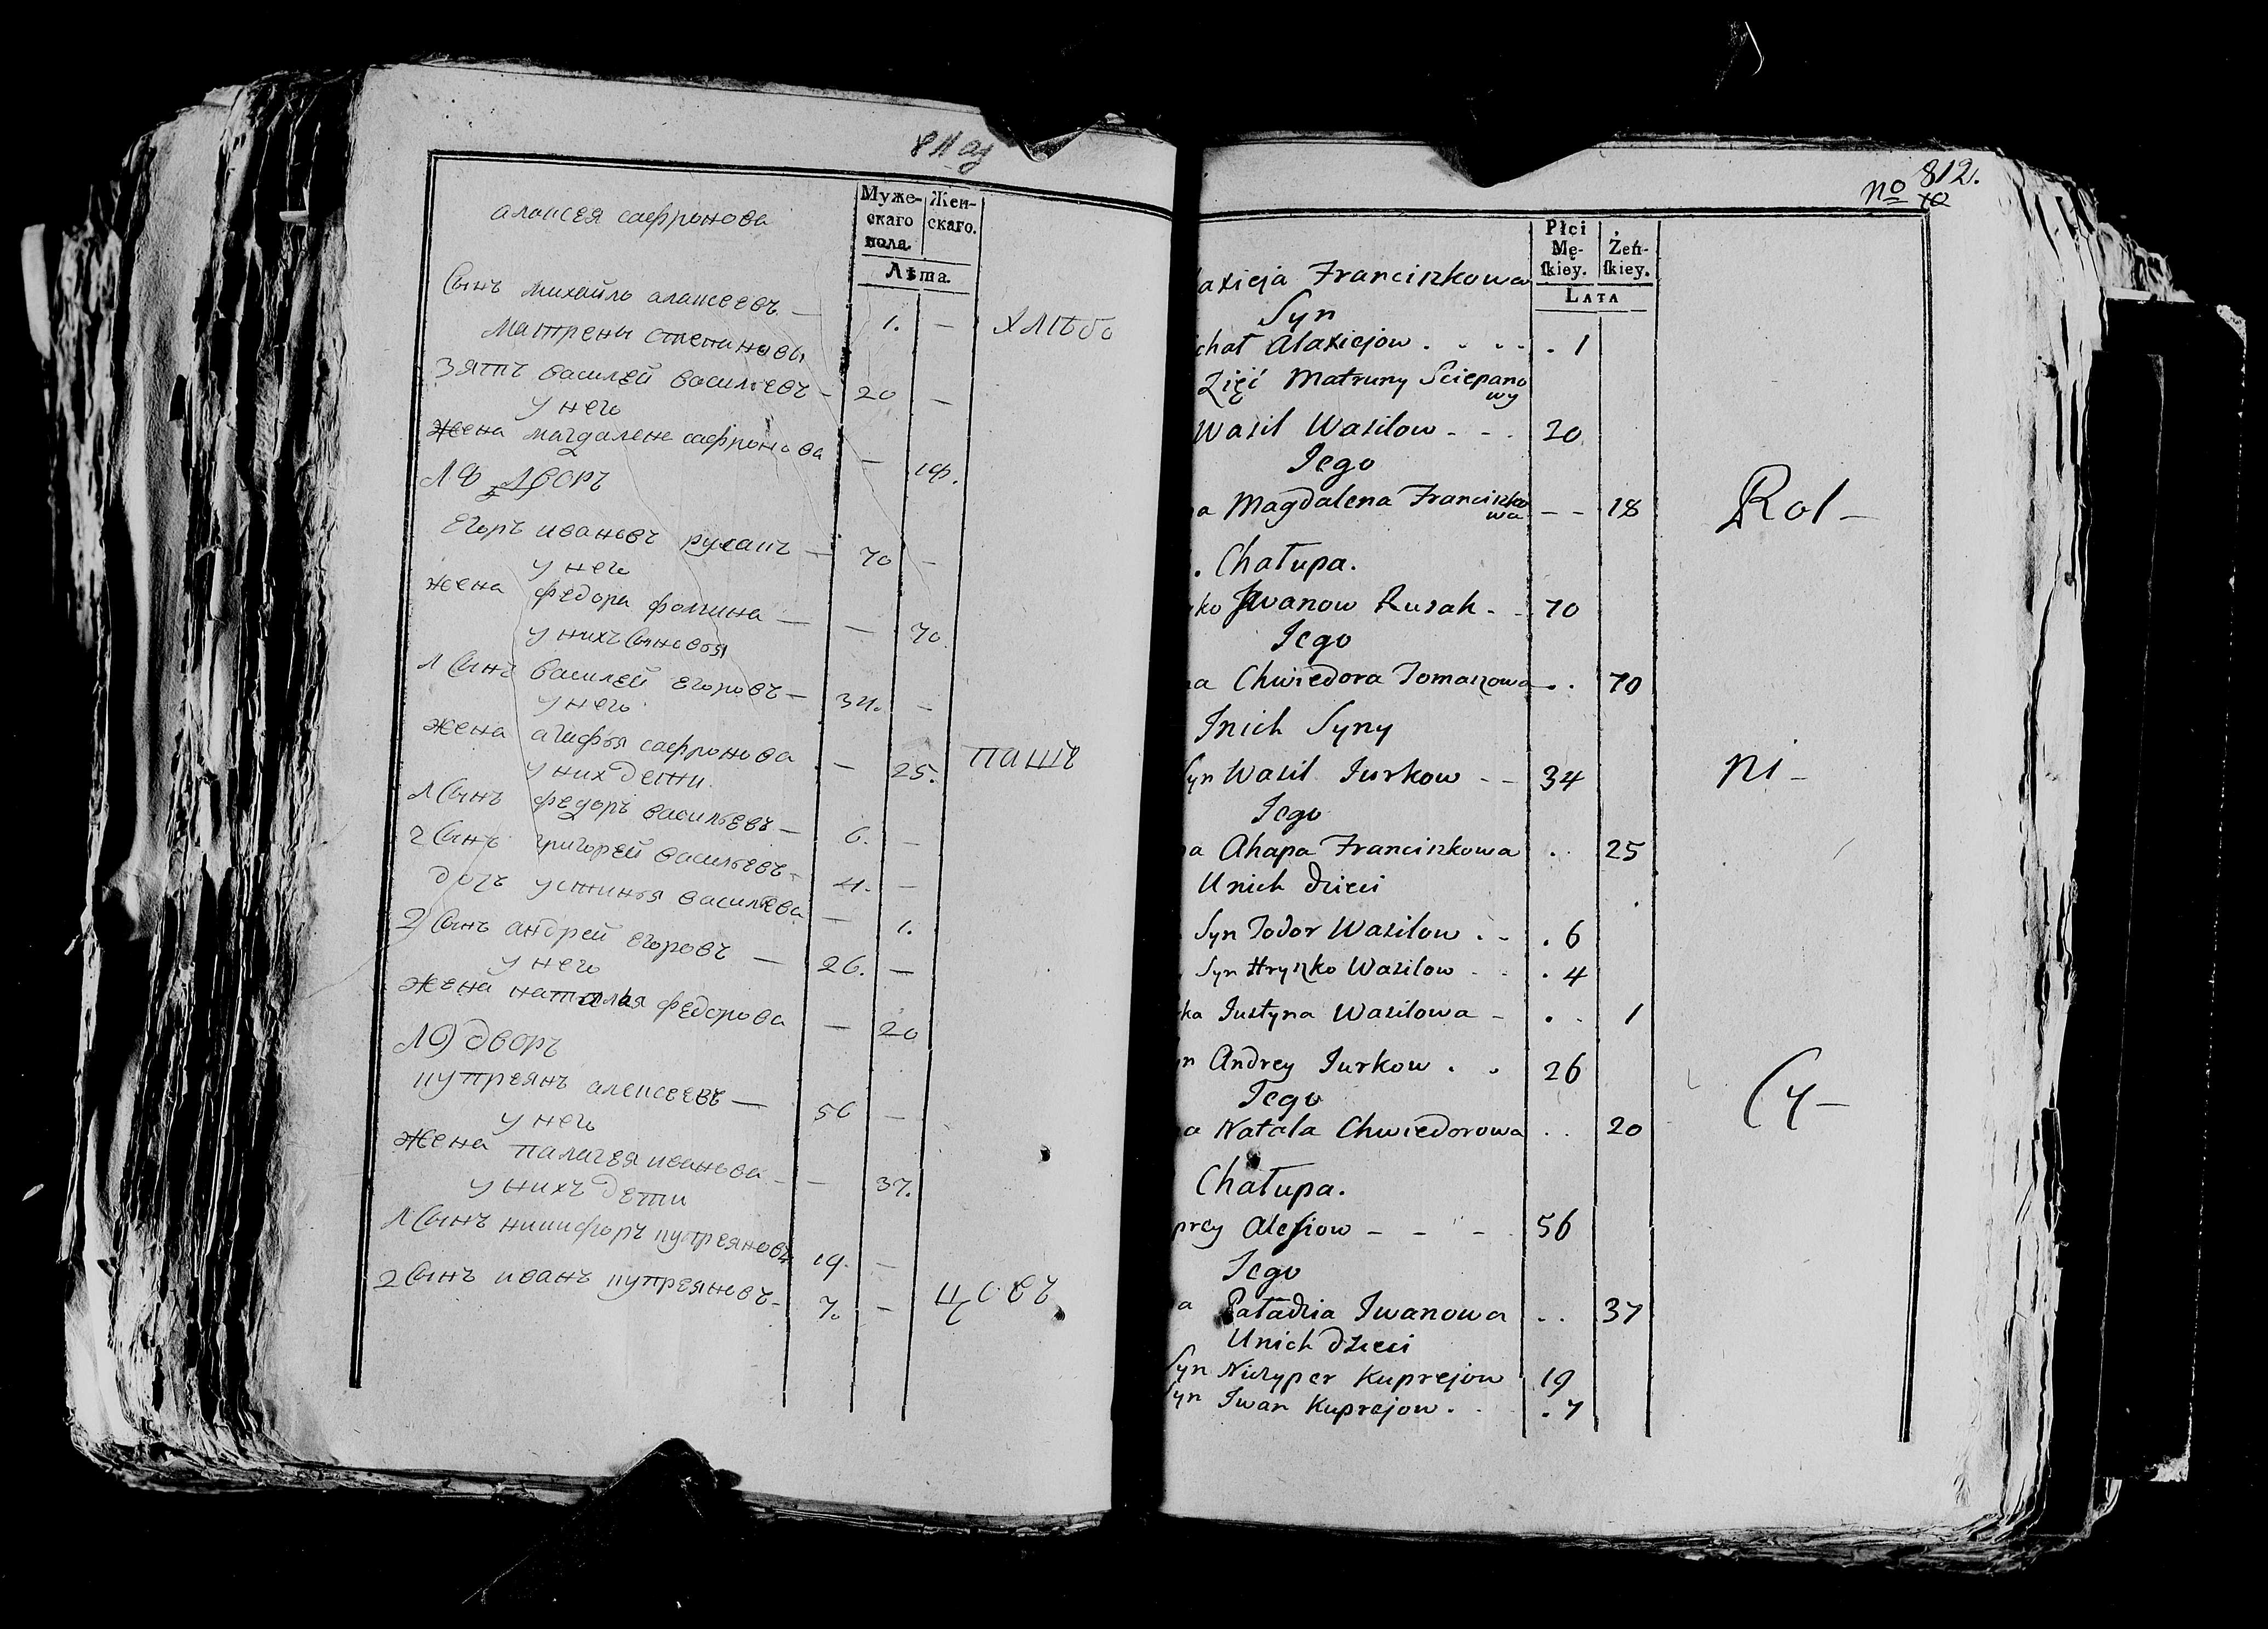 Муже-
скаго
пола.
Жен-
скаго.
Лѣта.
алексея сафронова
Сынъ михайлъ алексеевъ — 1. —
хлѣбо
матрены степановы
зять василей васильевъ — 20 —
у него
жена магдалена сафронова — 18.
дворъ
егоръ ивановъ русакъ — 70 —
у него
жена федора фомина — — 70.
у нихъ Сыновья
1 Сынъ василей егоровъ — 34. —
у него
жена агафья сафронова — 25.
паше
у них дети
1 Сынъ федоръ васильевъ — 6. —
2 Сынъ григорей васильевъ — 4. —
дочь устинья васильева — 1.
2 Сынъ андрей егоровъ — 26. —
у него
жена наталья федорова — 20
дворъ
купреянъ алексеевъ — 56 —
у него
жена палагея иванова — — 37.
у нихъ дети
1 Сынъ никифоръ купреяновъ 19. —
2 Сынъ иванъ купреяновъ — 7. —
цовъ
812.
No
Płci
Mę-
ſkiey.
Żeń-
ſkiey.
LATA
axieja Franciszkowa
Syn
chał Alaxiejow . . . . . 1
Zięć Matruny Sciepano
wy
Wasil Wasilow - - . 20
Jego
a Magdalena Franciszko
wa - - 18
Rol-
. Chałupa.
ko Iwanow Rusak - - 70
Jego
na Chwiedora Tomaszowa . . 70
Inich Syny
Syn Wasil Jurkow - - 34
ni-
Jego
na Ahapa Franciszkowa . . 25
Unich dzieci
Syn Fodor Wasilow . - . 6
Syn Hryszko Wasilow - . . 4
ka Justyna Wasilowa - . . 1
n Andrey Jurkow . . 26
Cy-
Jego
a Natala Chwiedorowa . . 20
Chałupa.
prey Alesiow - - - - 56
Jego
a Paładzia Iwanowa . . 37
Unich dzieci
Syn Niczyper Kuprejow 19
Syn Iwan Kuprejow . . . 7